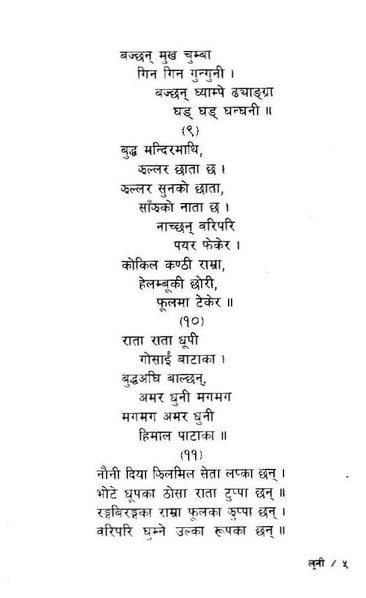 बज्छन् मुख चुम्बा
गिन गिन गुन्गुनी ।
बज्छन् घ्याम्पे ढ्याङ्ग्रा
घड् घड् घन्घनी ॥
(९)
बुद्ध मन्दिरमाथि,
झल्लर छाता छ ।
झल्लर सुनको छाता,
साँझको नाता छ ।
नाच्छन् वरिपरि
पयर फेकेर ।
कोकिल कण्ठी राम्रा,
हेलम्बूकी छोरी,
फूलमा टेकेर ॥
(१०)
राता राता धूपी
गोसाइँ बाटाका ।
बुद्धअघि बाल्छन्,
अमर धुनी मगमग
मगमग अमर धुनी
हिमाल पाटाका ॥
(११)
नौनी दिया झिलमिल सेता लप्का छन् ।
भोटे धूपका ठोसा राता टुप्पा छन् ॥
रङ्गबिरङ्गका राम्रा फूलका झुप्पा छन् ।
वरिपरि घुम्ने उल्का रूपका छन् ॥
लूनी / ५